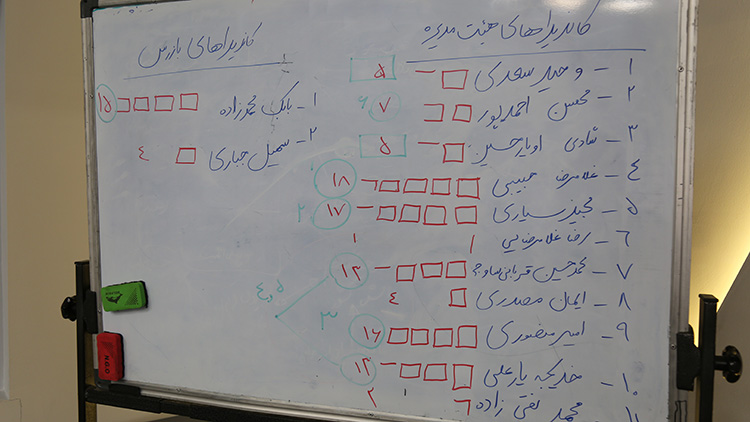 کاندیداهای هیئت مدیره
۱ - وحید سعدی ۵
۲ - محسن احمدپور ۷ ۶
۳ - شادی اویارحسین ۵
۴ - غلامرضا حبیبی ۱۸ ۱
۵ - مجید سیاری ۱۷ ۲
۶ - رضا غلامرضایی ۱ ۱
۷ - محمدحسین قربانی ۱۳
۸ - ایمان مصدری ۴
۹ - امیر منصوری ۱۶ ۳
۱۰ - خدیجه یارعلی ۱۳
۱۱ محمد تقی زاده ۲
۴ و ۵
کاندیداهای بازرس
۱ - بابک محمدزاده ۱۵
۲ - سهیل جباری ۴